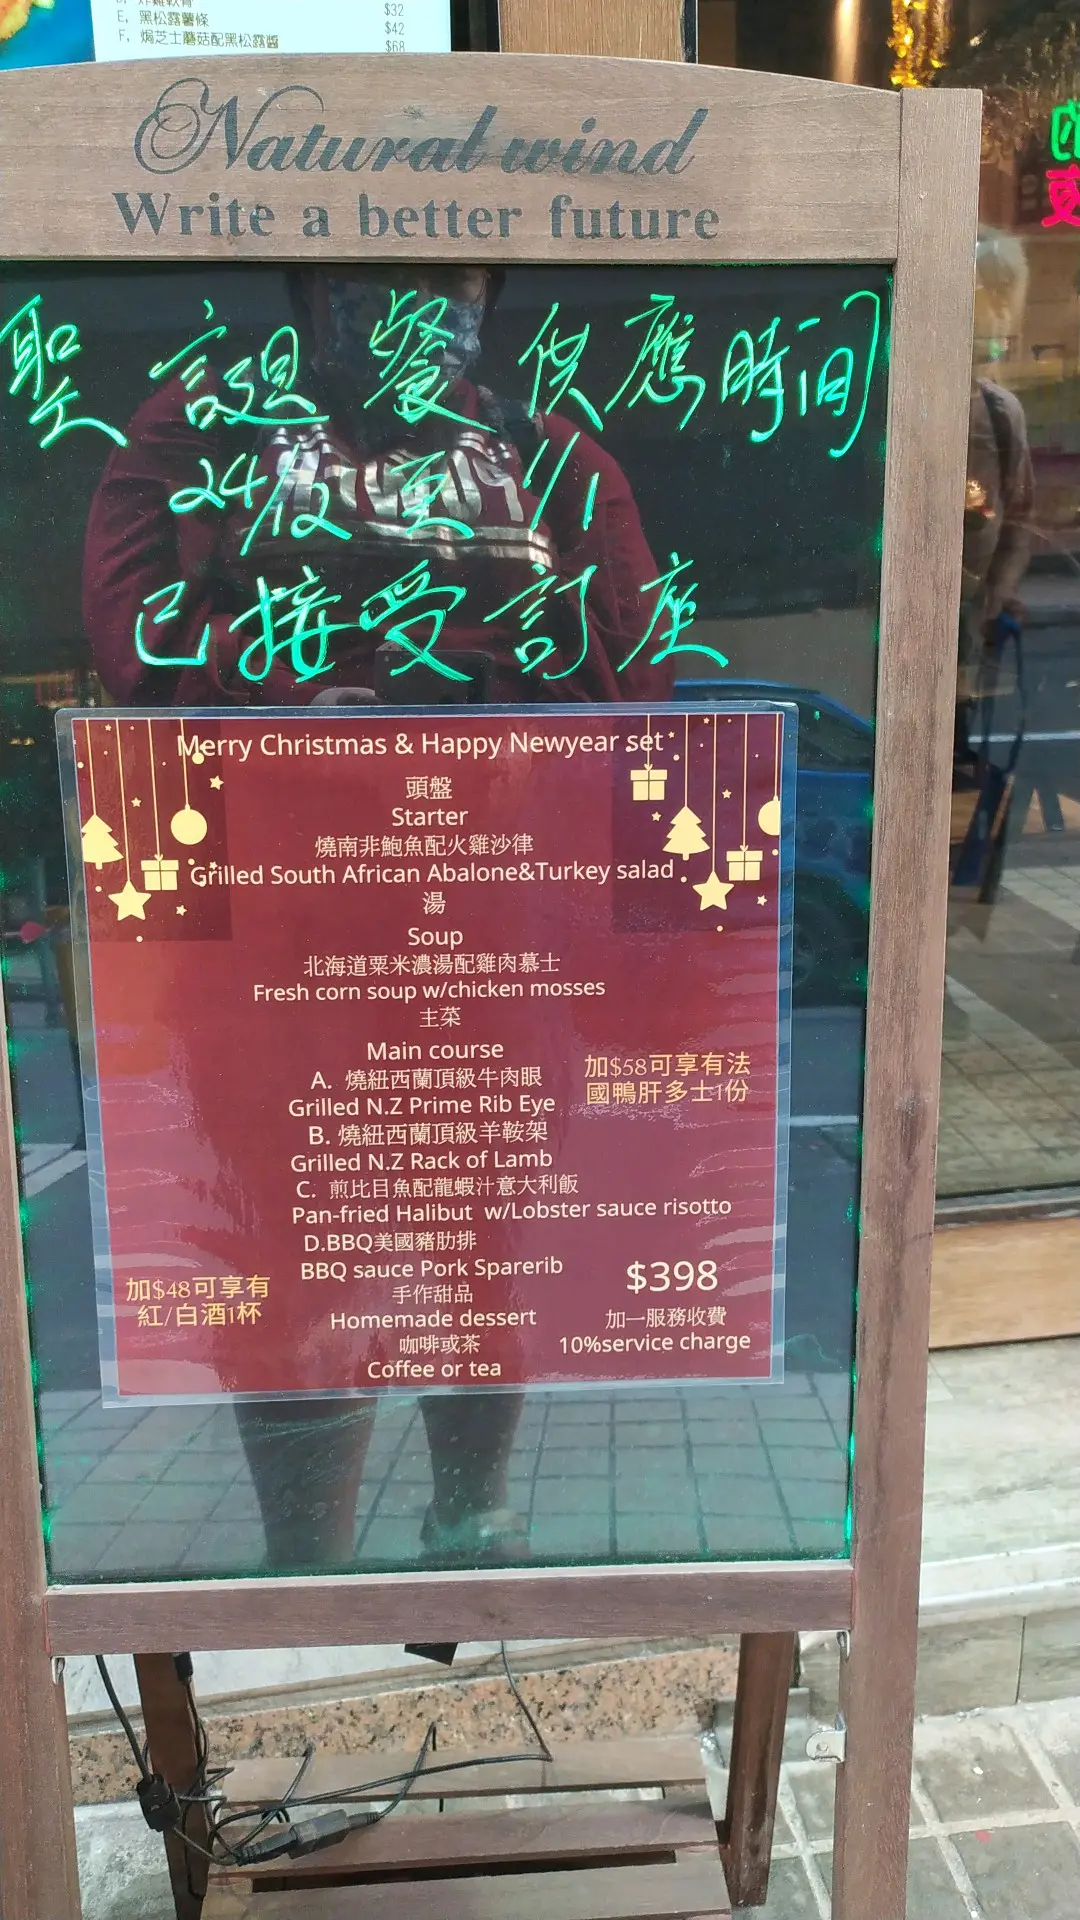 E, 黑松露薯條 $32
F, 焗芝士蘑菇配黑松露醬 $42
$68
Natural wind
Write a better future
聖誕餐供應時間
24/12 至 1/1
已接受訂座
Merry Christmas & Happy Newyear set
頭盤
Starter
燒南非鮑魚配火雞沙律
Grilled South African Abalone&Turkey salad
湯
Soup
北海道粟米濃湯配雞肉慕士
Fresh corn soup w/chicken mosses
主菜
Main course
A. 燒紐西蘭頂級牛肉眼
Grilled N.Z Prime Rib Eye
B. 燒紐西蘭頂級羊鞍架
Grilled N.Z Rack of Lamb
C. 煎比目魚配龍蝦汁意大利飯
Pan-fried Halibut w/Lobster sauce risotto
D.BBQ美國豬肋排
BBQ sauce Pork Sparerib
手作甜品
Homemade dessert
咖啡或茶
Coffee or tea
加$58可享有法
國鴨肝多士1份
加$48可享有
紅/白酒1杯
$398
加一服務收費
10%service charge